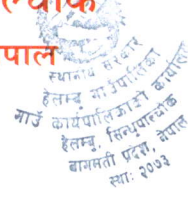 ल्चोक
पाल
स्थानीय सरकार
हेलम्बु गाउँपालिका
गाउँ कार्यपालिकाको कार्यालय
हेलम्बु, सिन्धुपाल्चोक
बागमती प्रदेश, नेपाल
स्था: २०७३